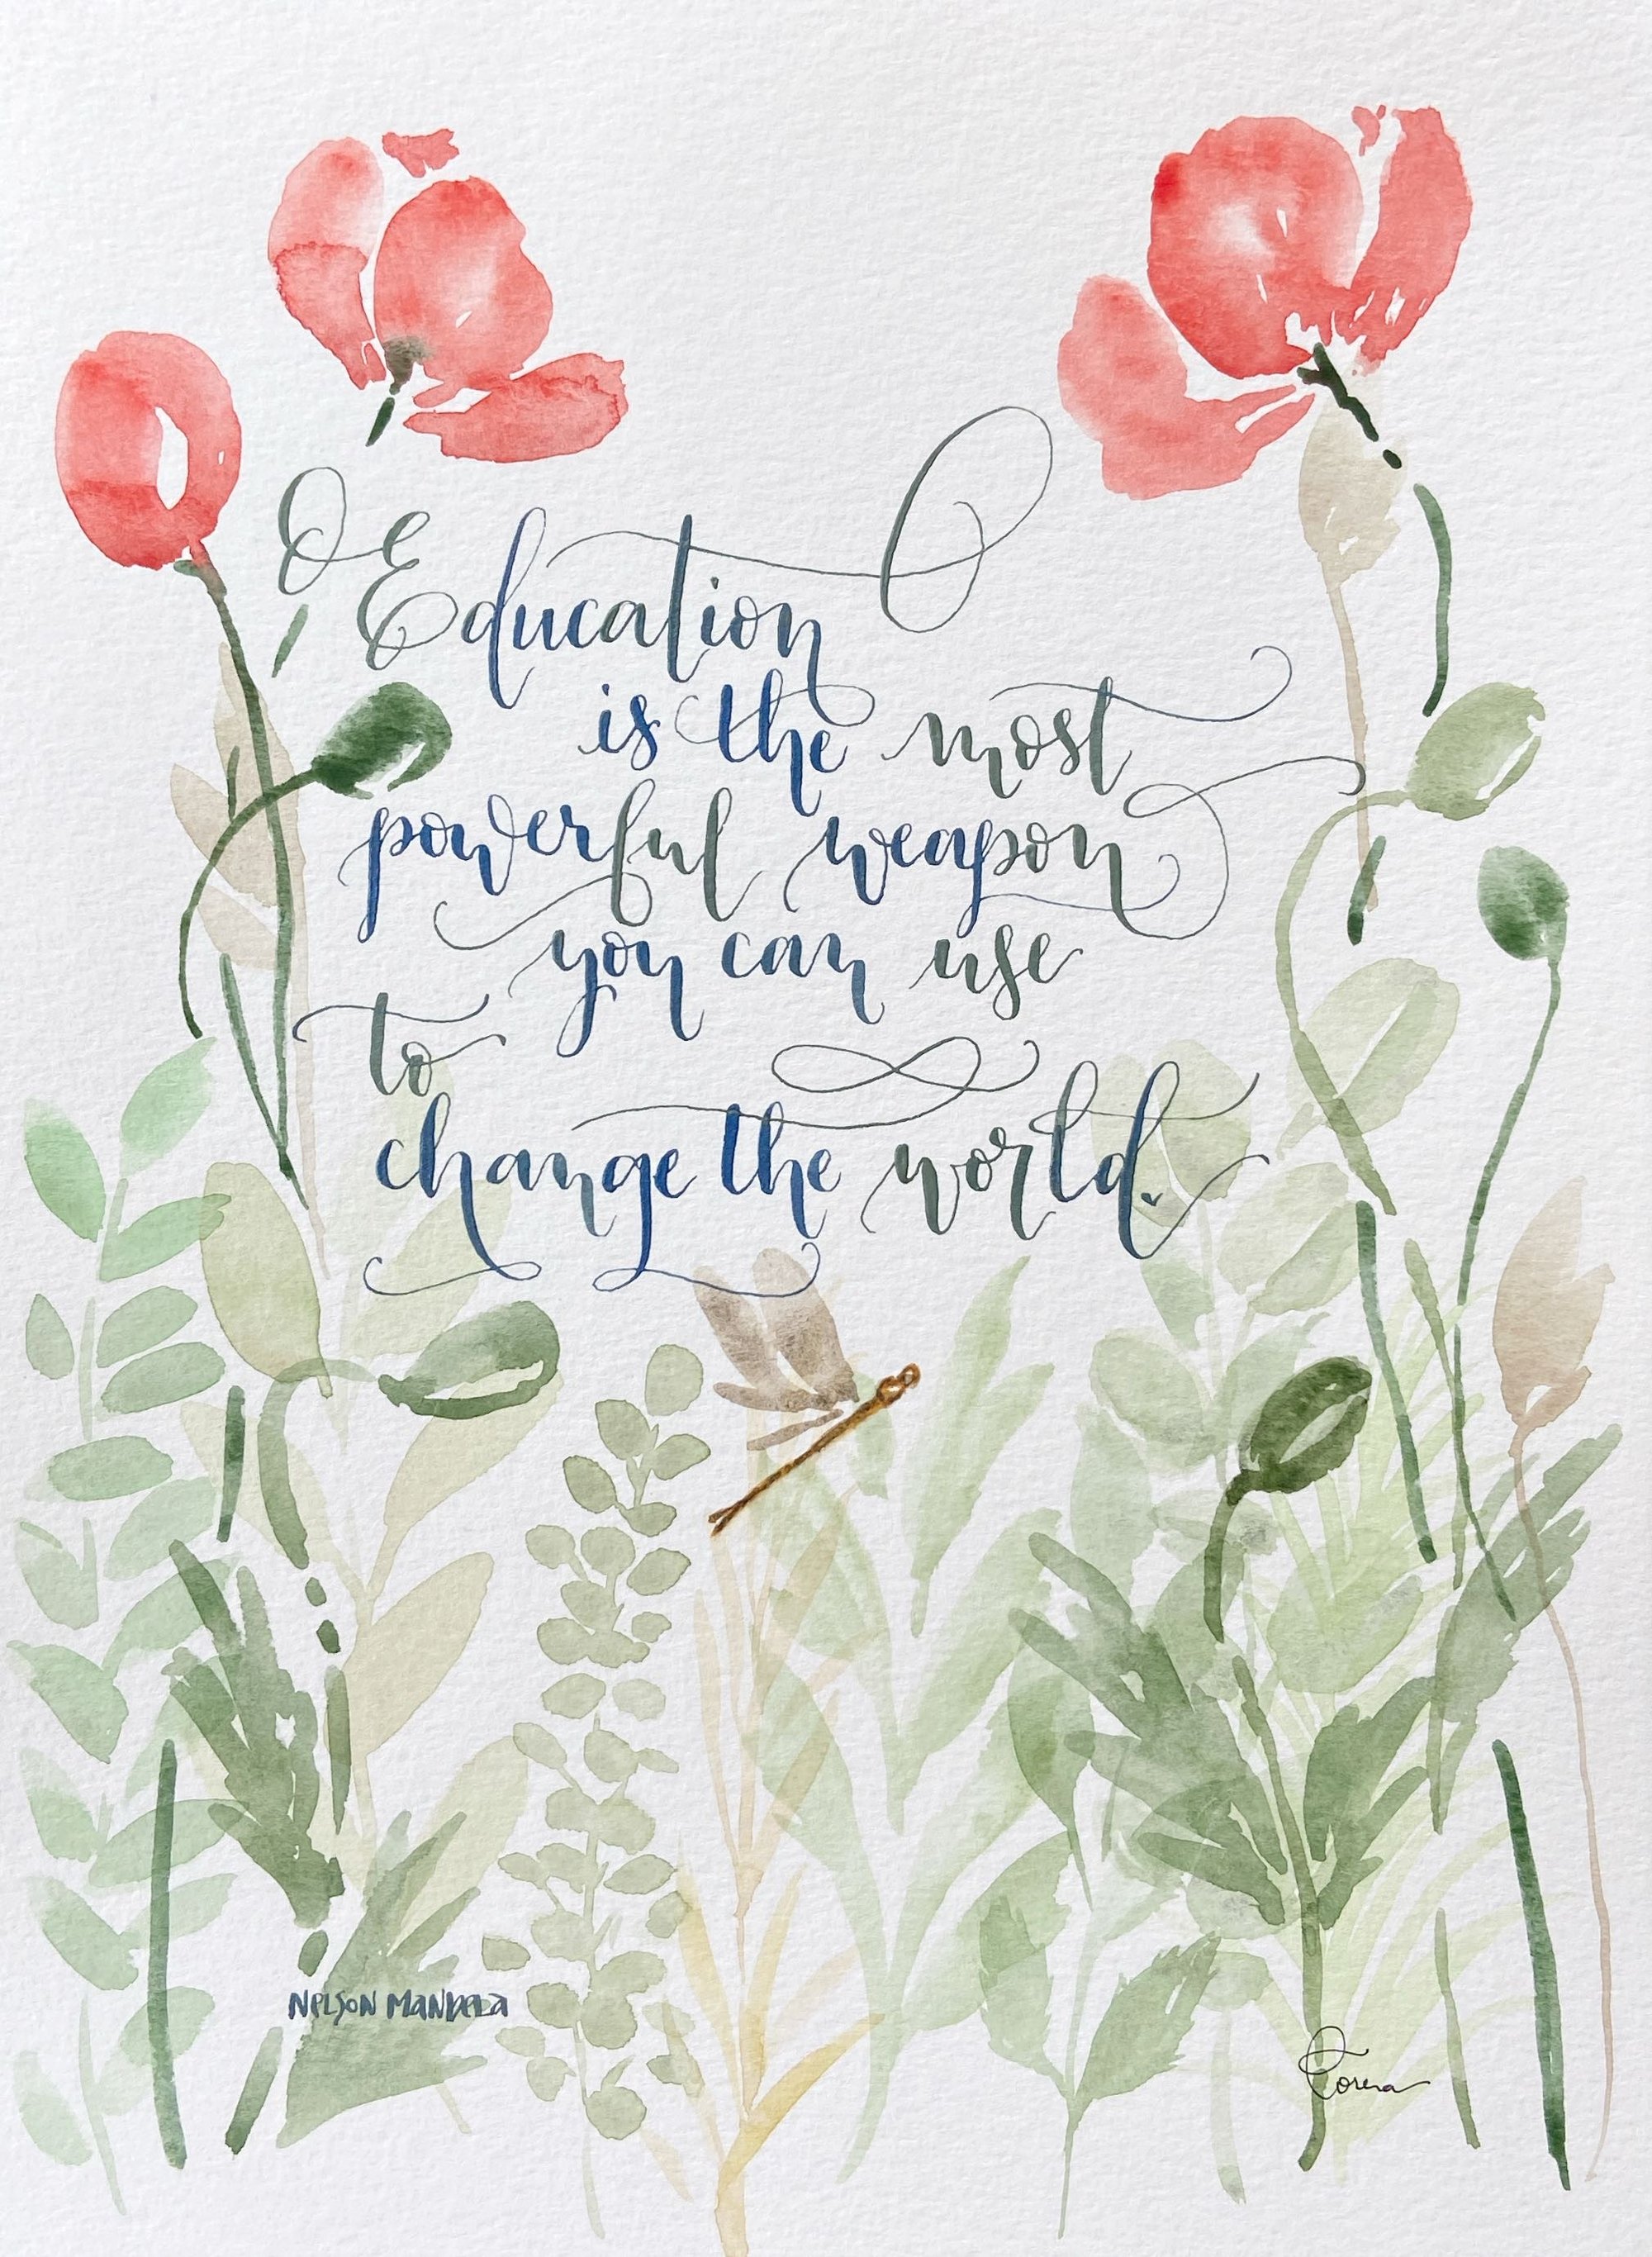 Education
is the most
powerful weapon
you can use
to
change the world.
NELSON MANDELA